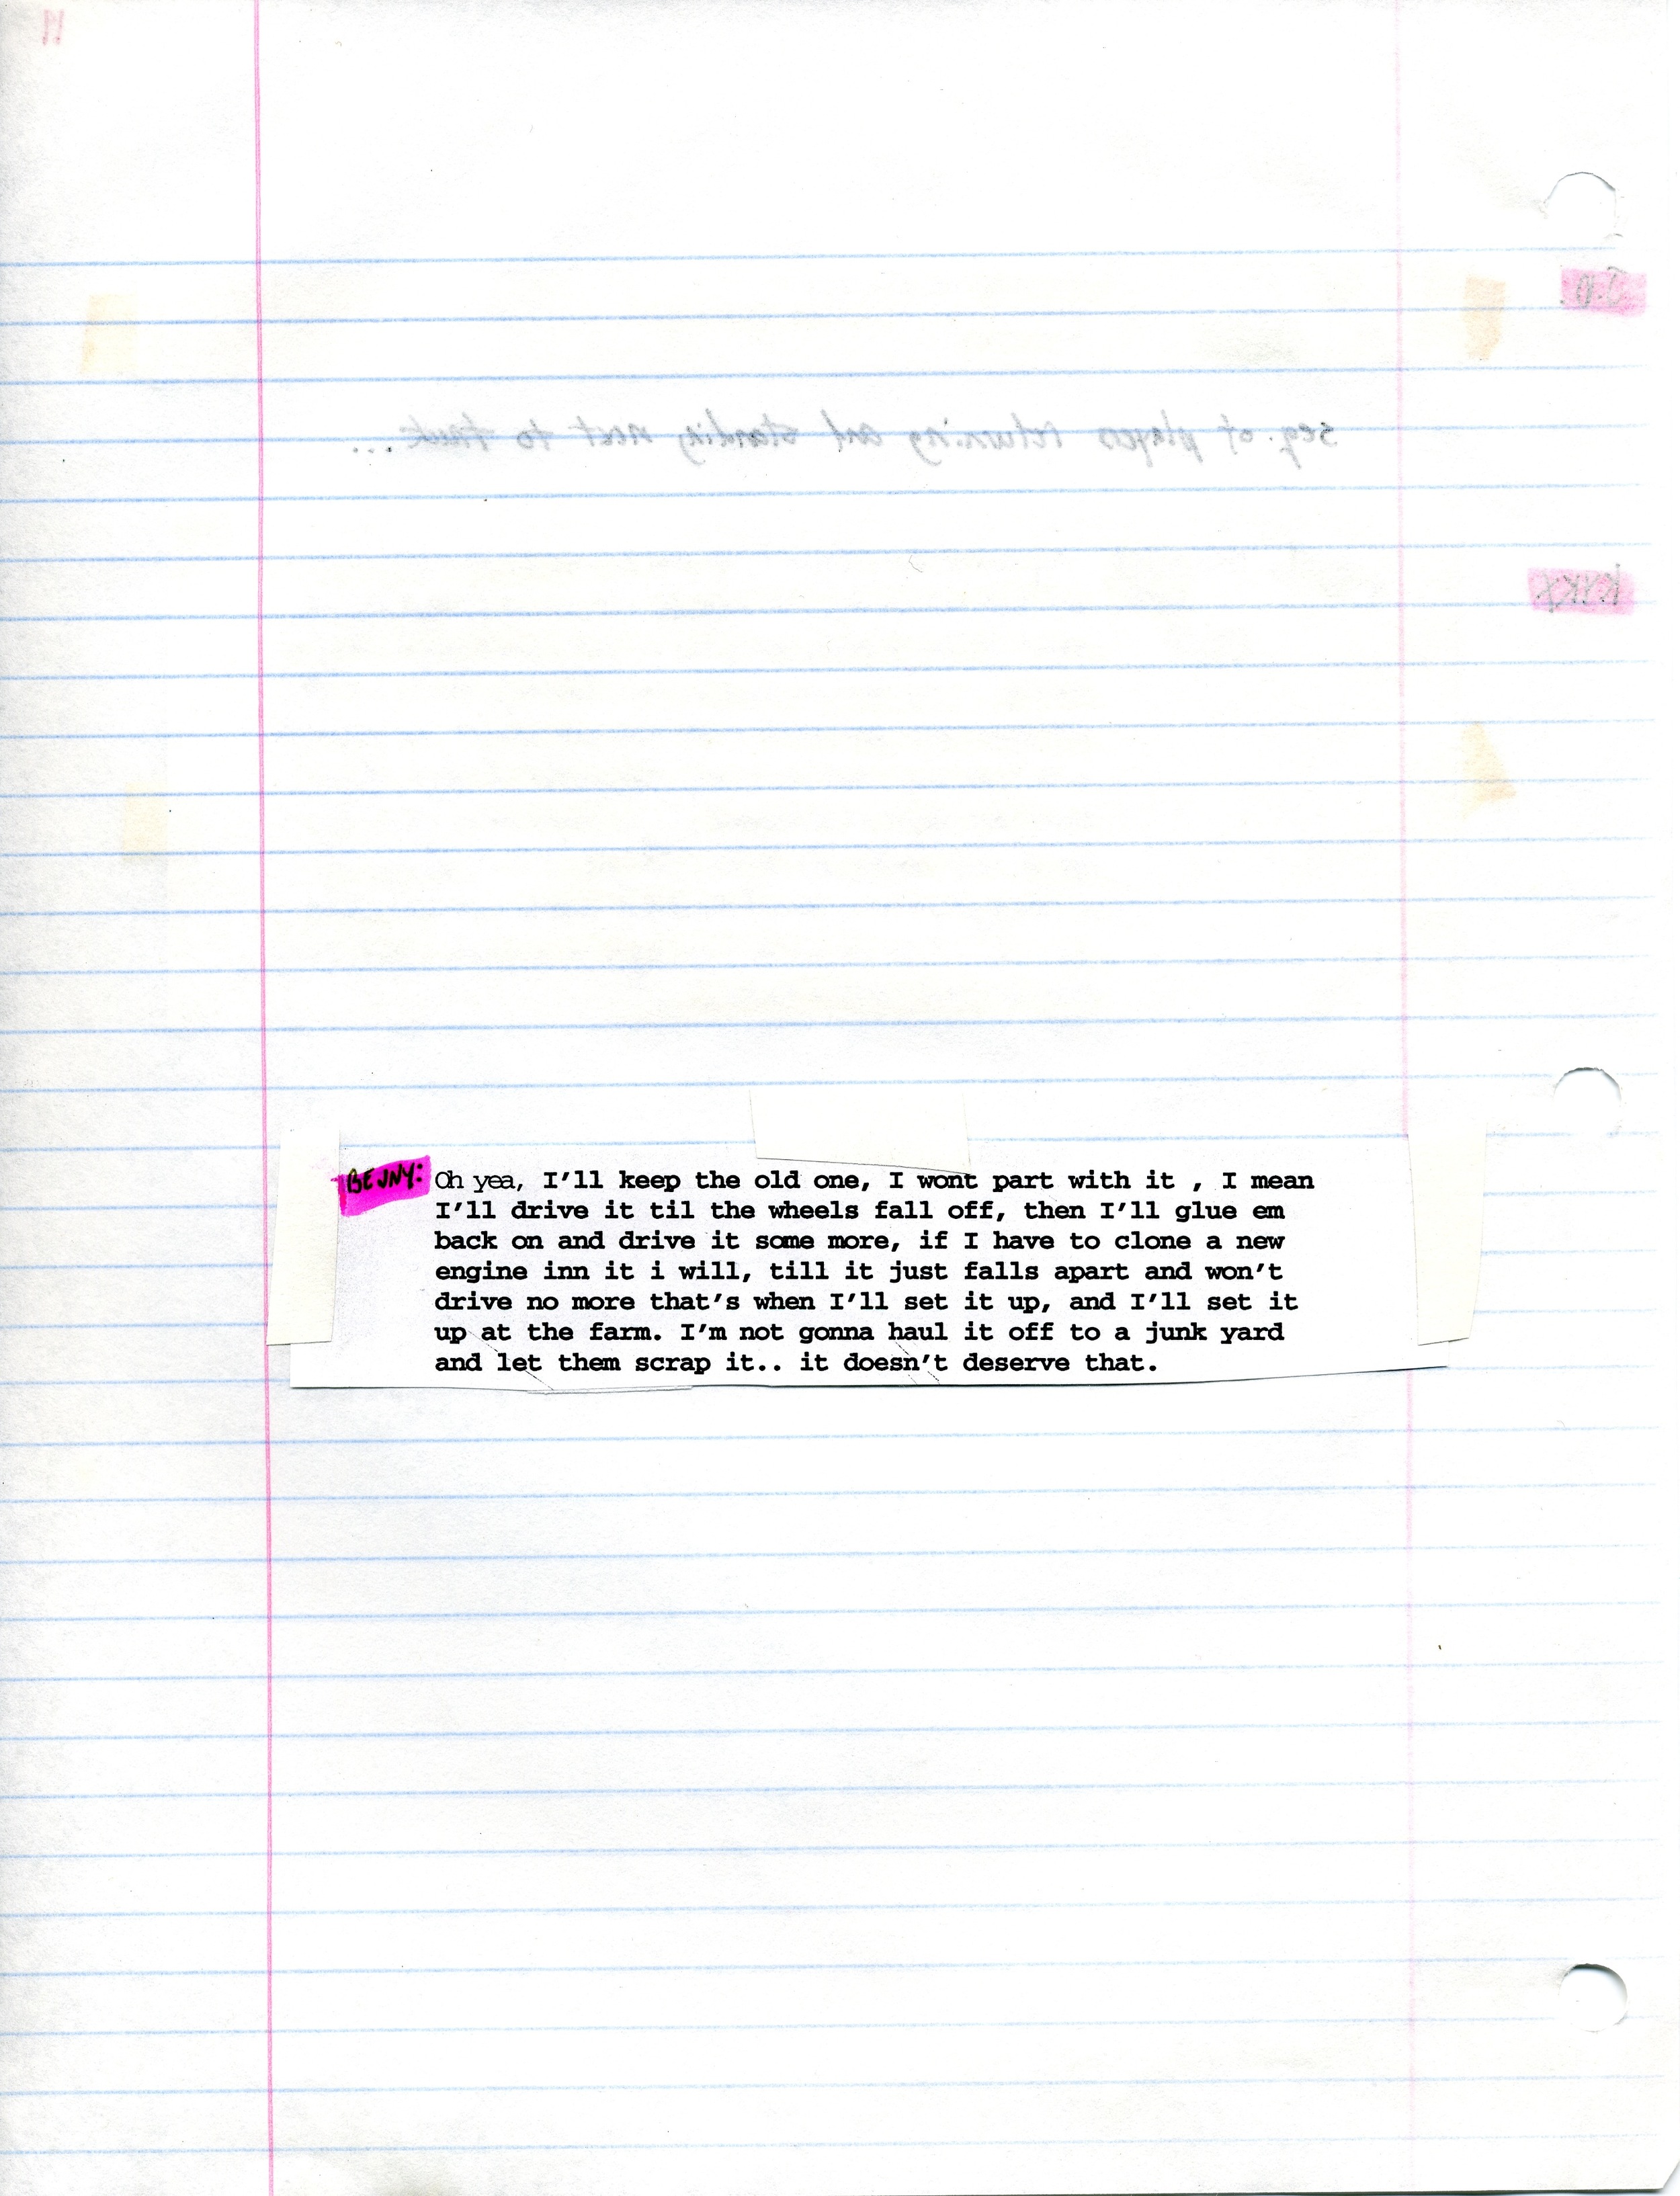 J.D.
seq. of players returning and standing next to truck...
BENNY: Oh yea, I'll keep the old one, I wont part with it , I mean
I'll drive it til the wheels fall off, then I'll glue em
back on and drive it some more, if I have to clone a new
engine inn it i will, till it just falls apart and won't
drive no more that's when I'll set it up, and I'll set it
up at the farm. I'm not gonna haul it off to a junk yard
and let them scrap it.. it doesn't deserve that.